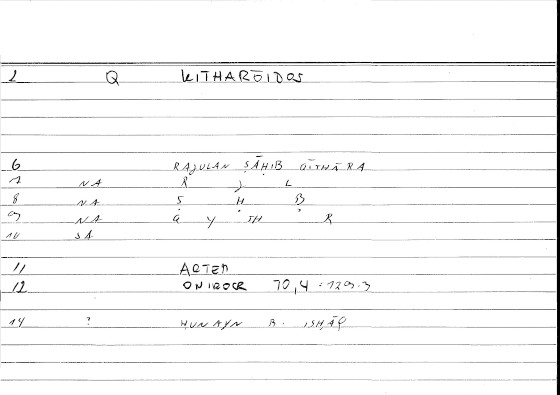 2 Q KITHARŌIDOS
6 RAJULAN ṢĀḤIB QĪTHĀRA
7 NA R J L
8 NA Ṣ Ḥ B
9 NA Q Y TH R
10 SA
11 ARTEM
12 ONIROCR 70,4 = 129.3
14 ? ḤUNAYN B. ISḤĀQ